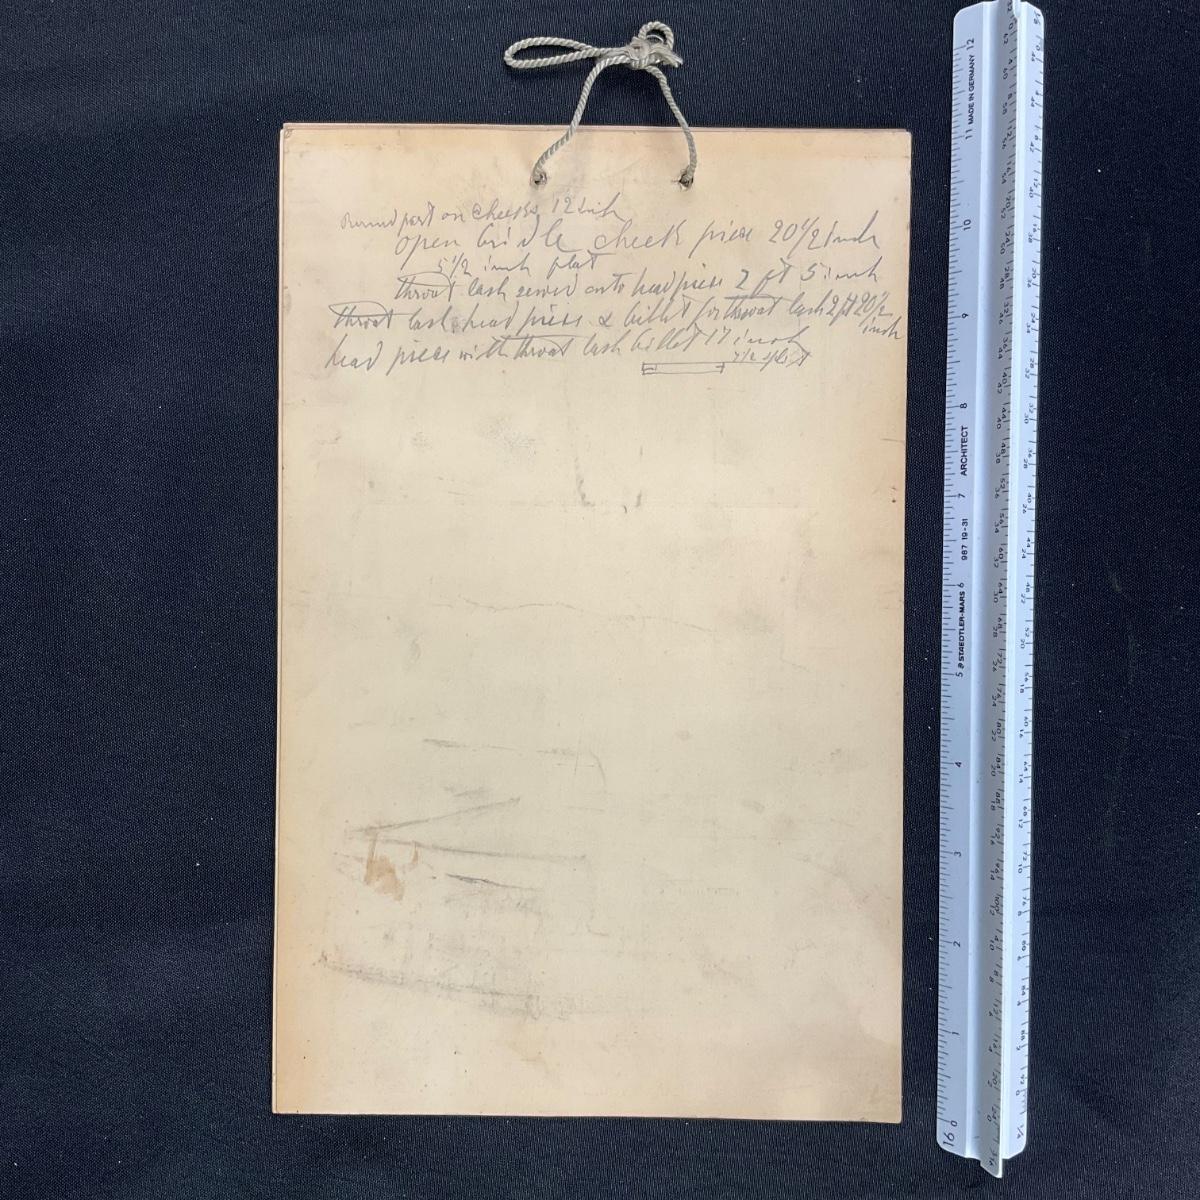 Round part on cheeks 12 inch
open bridle cheek piece 20 1/2 inch
5 1/2 inch flat
throat lash sewed onto head piece 2 ft 5 inch
throat lash head piece & billet for throat lash 2 ft 20 1/2
inch
head piece with throat lash billet 17 inch
7 1/2 split
MADE IN GERMANY
ARCHITECT
987 19-31
STAEDTLER-MARS